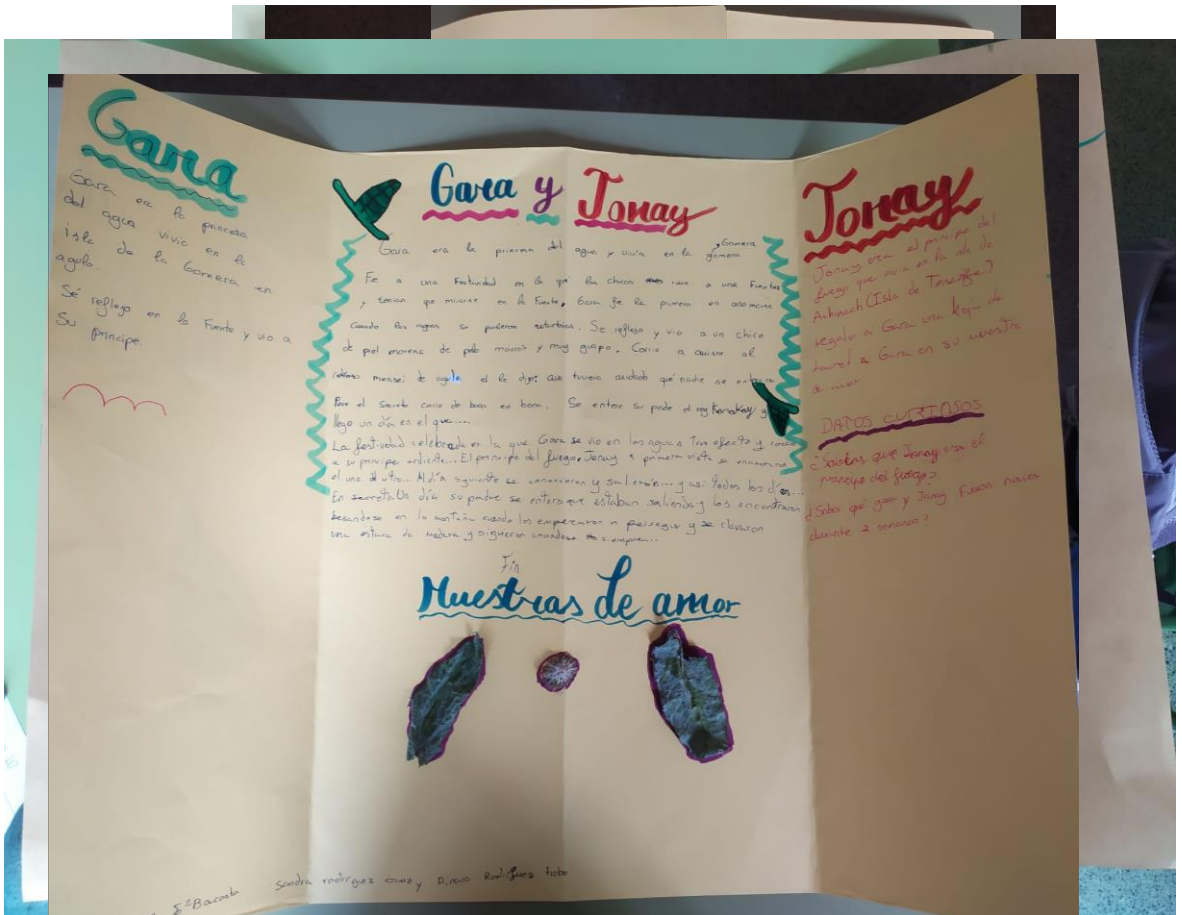 Gara
Gara era la princesa
del agua vivia en la
isla de la Gomera en
agulo.
Sé reflejo en la Fuente y vio a
Su principe.
Gara y Jonay
Gara era la princesa del agua y vivia en la gomera
Gomera
Fe a una Festividad en la qé las chicas van a una Fuentes
y tenian que mirarse en la Fuente, Gara fe la primera en asomarse
cuando las aguas se pusieron Se reflejo y vio a un chico
de piel morena de pelo marrón y muy guapo. Corrio a avisar al
de agulo el le dijo: que tuviera cuidado qué nadie se
Pero el secreto corrio de boca en boca. Se entero su padre el rey y
llego un día en el que....
La festividad celebrada en la que Gara se vio en las aguas efecto y
a su principe ardiente... El principe del fuego, Jonay a primera vista se enamoraron
el uno del otro... Al día siguiente se conocieron y salieron... y asi todos los días...
En secreto. Un día su padre se entero que estaban saliendo y los encontraron
besandose en la montaña cuando los empezaron a perseguir y se clavaron
una estaca de madera y sigueron amandose siempre...
Fin
Muestras de amor
Jonay
Jonay era el principe del
fuego que vivia en la isla de
Achinech (Isla de Tenerife)
regalo a Gara una hoja de
laurel a Gara en su muestra
de amor
DATOS CURIOSOS
¿Sabías que Jonay era el
principe del fuego?
¿Sabes qé gara y Jonay Fueron novios
durante 2 semanas?
Sandra rodriguez y Rodriguez